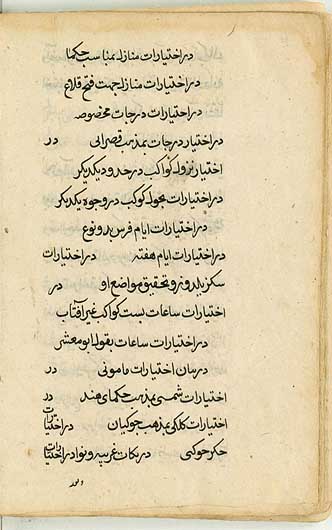 در اختیارات منازل بمناسب حکما
در اختیارات منازل جهت فتح قلاع
در اختیارات درجات مخصوصه
در اختیار درجات بمذهب قصرانی در
اختیار نزول کواکب در حدود یکدیگر
در اختیارات تحول کوکب در وجوه یکدیگر
در اختیارات ایام فرس بدو نوع
در اختیارات ایام هفته در اختیارات
سکزیلدوز و تحقیق مواضع او در
اختیارات ساعات بست کواکب غیر آفتاب
در اختیارات ساعات بقول ابومعشر
در بیان اختیارات مامونی در
اختیارات شمسی بمذهب حکمای هند در
اختیارات کلکی بمذهب جوکیان در اختیارات
چکر جوکنی در نکات غریبه و نوادر اختیارات